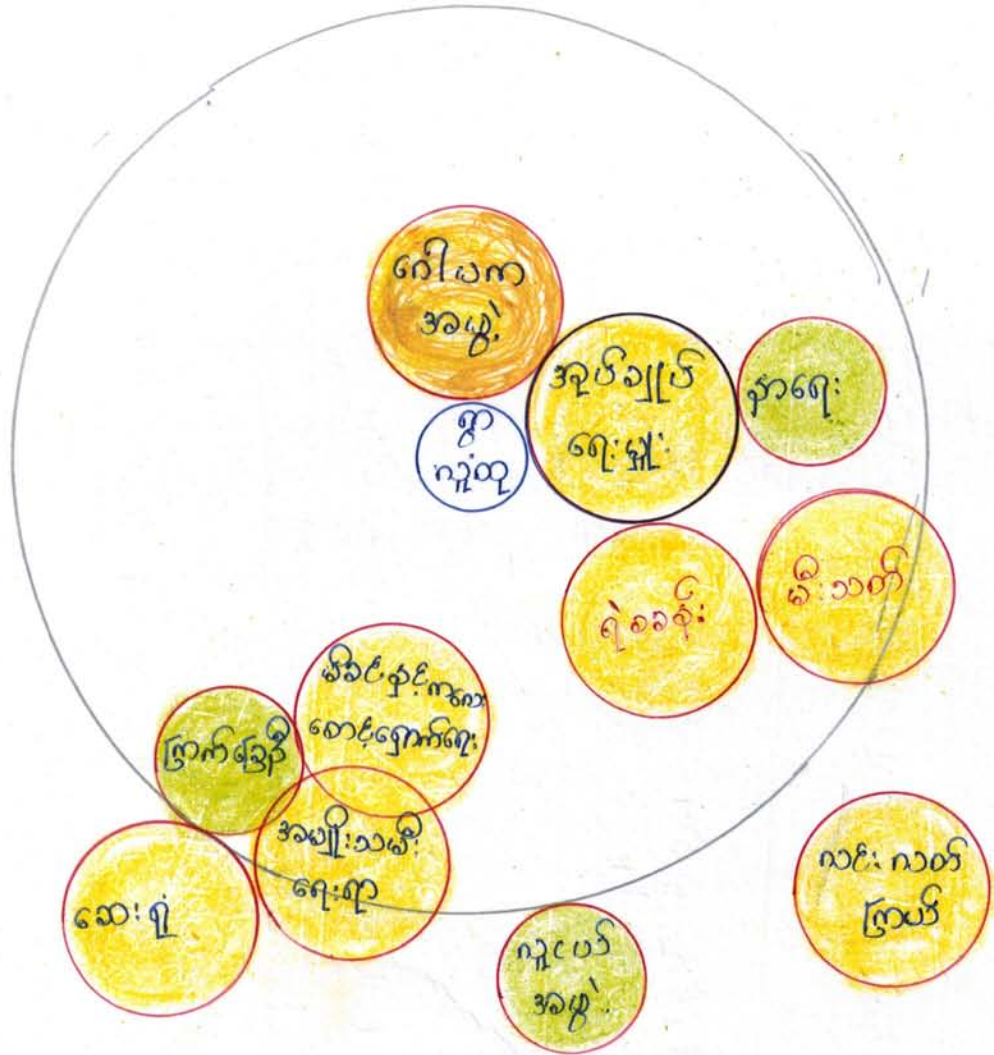 ဂေါပက
အဖွဲ့
အုပ်ချုပ်
ရေးမှူး
နာရေး
ရွာ
လူထု
ရဲစခန်း
မီးသတ်
မိခင်နှင့်ကလေး
စောင့်ရှောက်ရေး
ကြက်ခြေနီ
အမျိုးသမီး
ရေးရာ
ဆေးရုံ
လူငယ်
အဖွဲ့
လင်းလတ်
ကြယ်